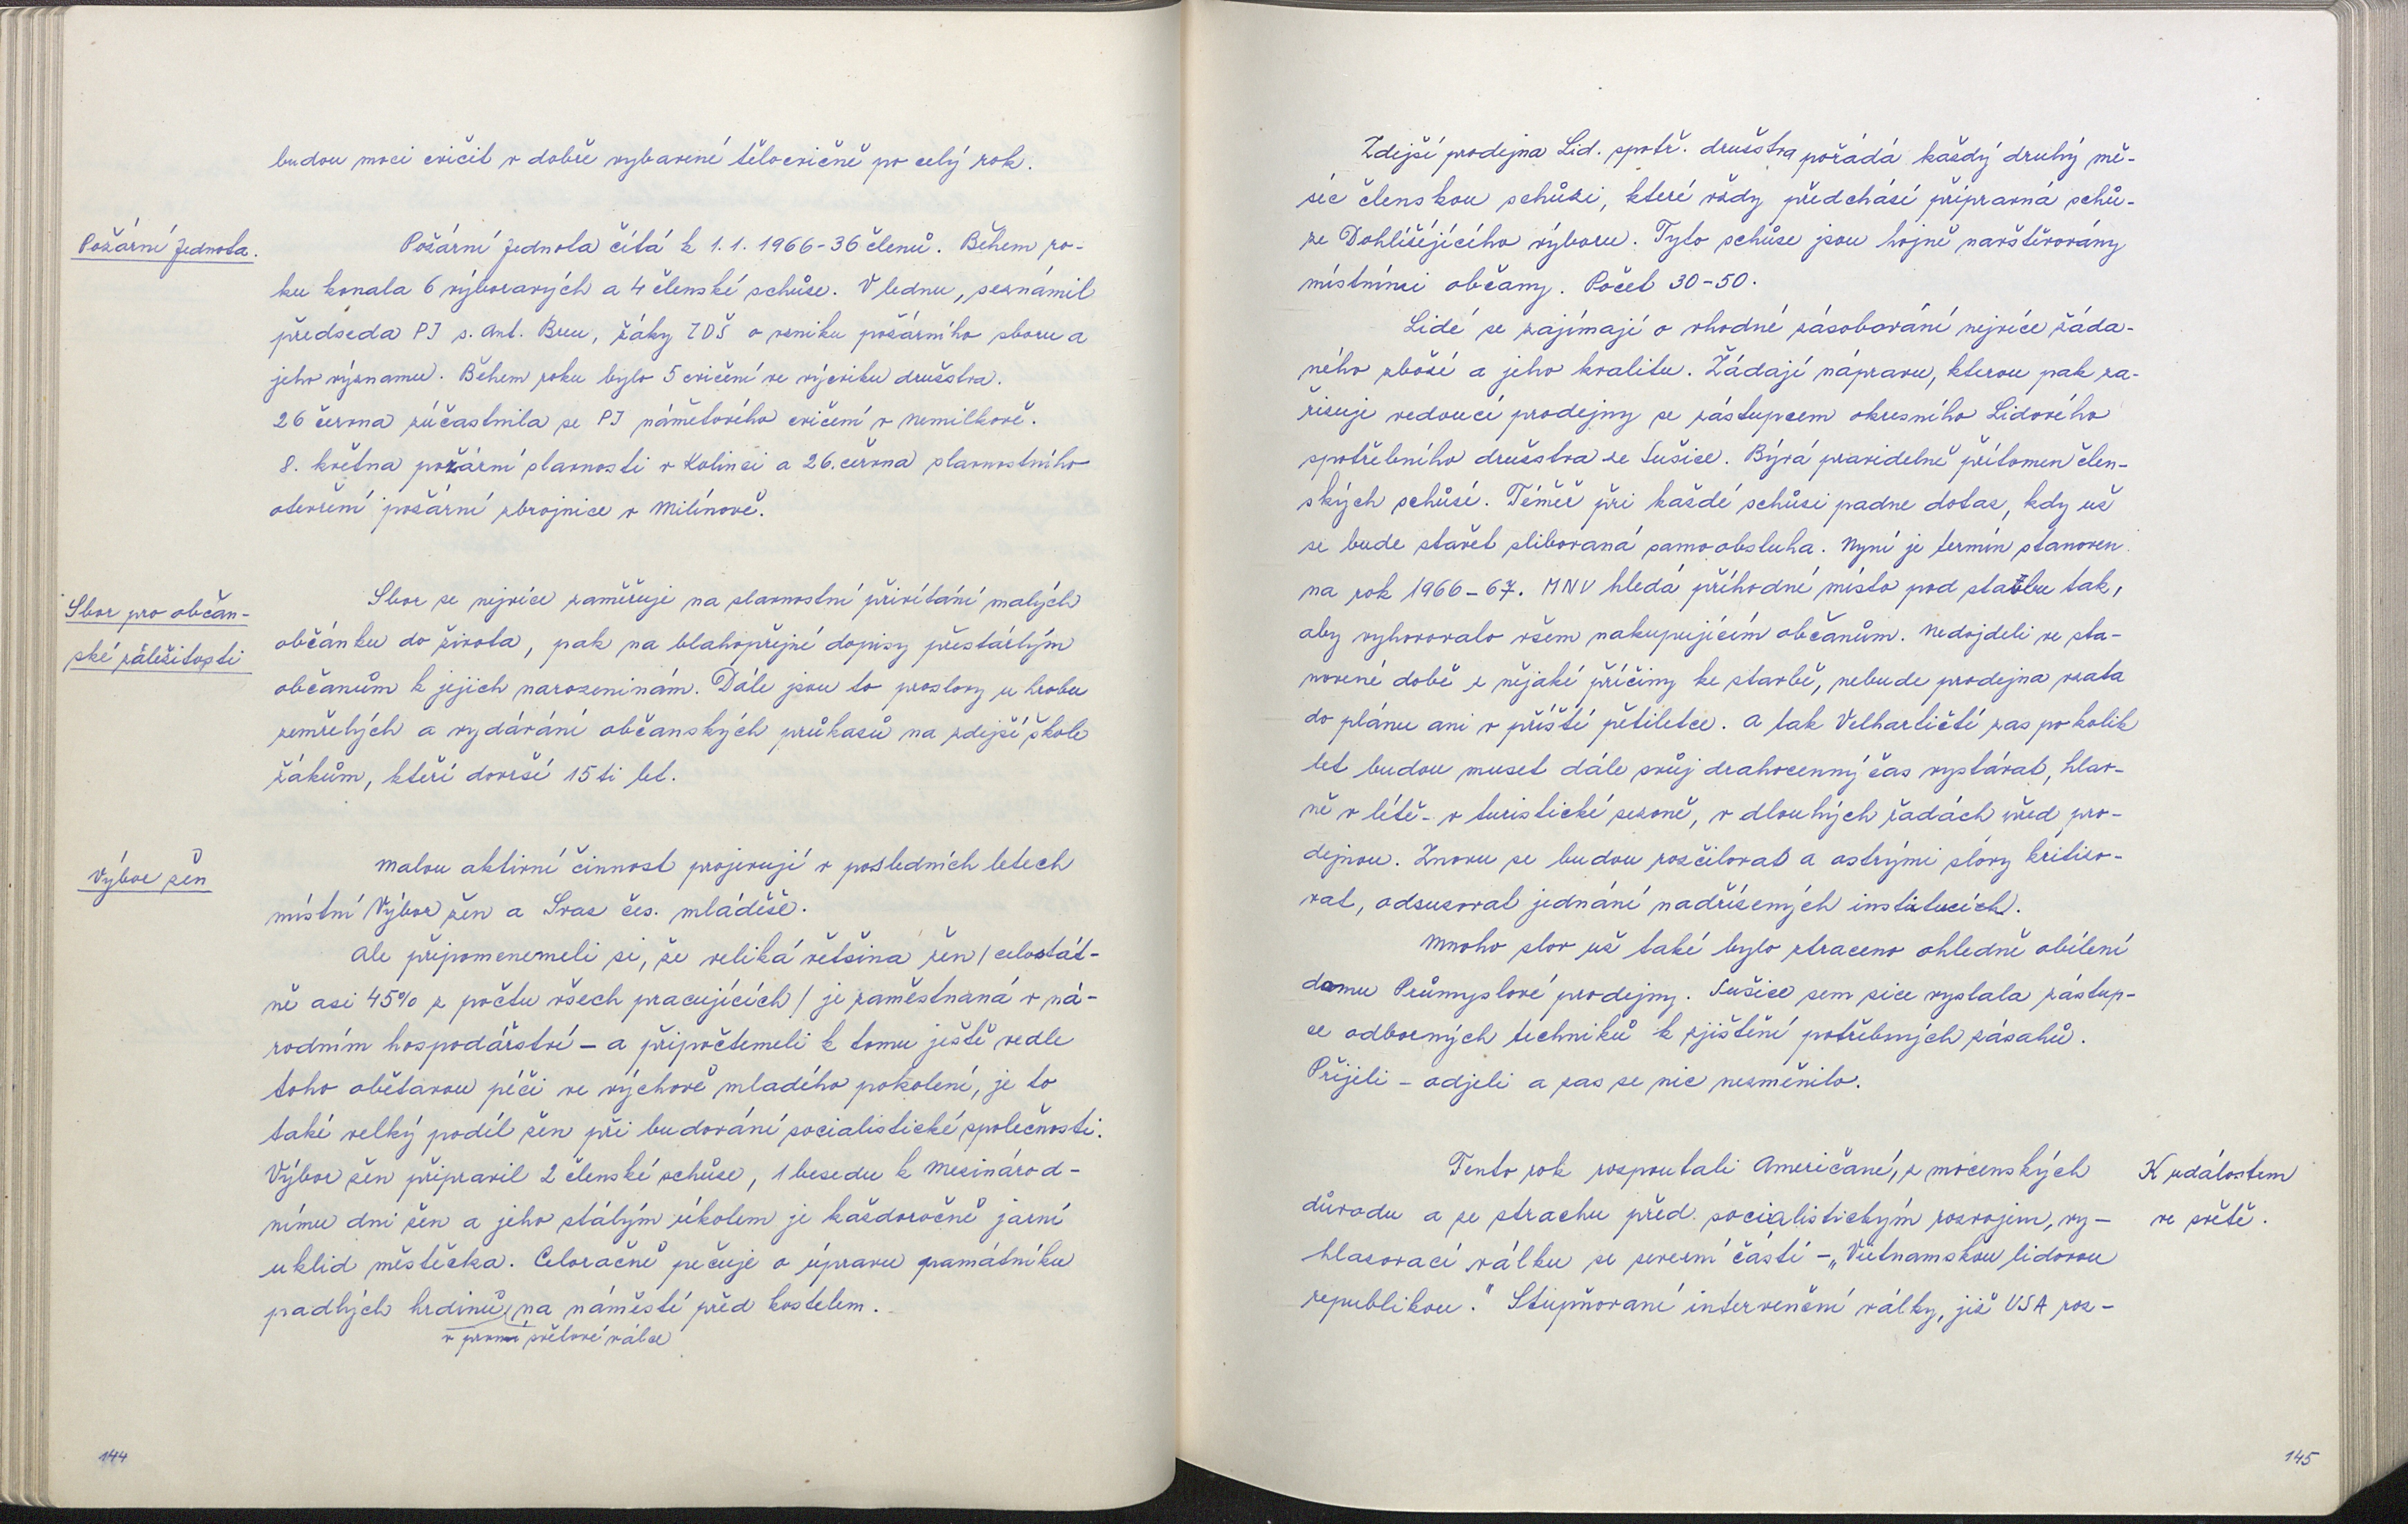 budou moci cvičit v dobře vybavené tělocvičně po celý rok.
Požární Jednota.
Požární Jednota čítá k 1.1. 1966 - 36 členů. Během ro-
ku konala 6 výborových a 4 členské schůze. V lednu, seznámil
předseda PJ s. Ant. Breu, žáky ZDŠ o vzniku požárního sboru a
jeho významu. Během roku bylo 5 cvičení ve výcviku družstva.
26 června zúčastnila se PJ námětového cvičení v Nemilkově.
8. května požární slavnosti v Kolinci a 26. června slavnostního
otevření požární zbrojnice v Milínově.
Sbor pro občan-
ské záležitosti
Sbor se nejvíce zaměřuje na slavnostní přivítání malých
občánku do života, pak na blahopřejné dopisy přestárlým
občanům k jejich narozeninám. Dále jsou to proslovy u hrobu
zemřelých a vydávání občanských průkazů na zdejší škole
žákům, kteří dovrší 15 ti let.
Výbor žen
Malou aktivní činnost projevují v posledních letech
místní Výbor žen a Svaz čes. mládeže.
Ale připomenemeli si, že veliká většina žen / celostát-
ně asi 45% z počtu všech pracujících / je zaměstnaná v ná-
rodním hospodářství - a připočtemeli k tomu ještě vedle
toho obětavou péči ve výchově mladého pokolení, je to
také velký podíl žen při budování socialistické společnosti.
Výbor žen připravil 2 členské schůze, 1 besedu k Mezinárod-
nímu dni žen a jeho stálým úkolem je každoročně jarní
uklid městečka. Celoračně pečuje o úpravu památníku
padlých hrdinů, na náměstí před kostelem.
v první světové válce
144
Zdejší prodejna Lid. spotř. družstva pořádá každý druhý mě-
síc členskou schůzi, které vždy předchází přípravná schů-
ze Dohlížéjícího výboru. Tyto schůze jsou hojně navštěvovány
místními občany. Počet 30-50.
Lidé se zajímají o vhodné zásobování nejvíce žáda-
ného zboží a jeho kvalitu. Žádají nápravu, kterou pak za-
řizuje vedoucí prodejny se zástupcem okresního Lidového
spotřebního družstva ze Sušice. Bývá pravidelně přítomen člen-
ských schůzí. Téměř při každé schůzi padne dotaz, kdy už
se bude stavět slibovaná samoobsluha. Nyní je termín stanoven
na rok 1966-67. MNV hledá příhodné místo pod stavbu tak,
aby vyhovovalo všem nakupujícím občanům. Nedojdeli ve sta-
novené době z nějaké příčiny ke stavbě, nebude prodejna vzata
do plánu ani v příští pětiletce. A tak Velhartičtí zas po kolik
let budou muset dále svůj drahocenný čas vystávat, hlav-
ně v létě - v turistické sezoně, v dlouhých řadách před pro-
dejnou. Znovu se budou rozčilovat a ostrými slovy kritizo-
vat, odsuzovat jednání nadřízených institucích.
Mnoho slov už také bylo ztraceno ohledně obílení
domu Průmyslové prodejny. Sušice sem sice vyslala zástup-
ce odborných techniků k zjištění potřebných zásahů.
Přijeli - odjeli a zas se nic nezměnilo.
K událostem
ve světě.
Tento rok rozpoutali Američané, z mocenských
důvodu a ze strachu před socialistickým rozvojem, vy-
hlazovací válku se severní částí - „Vietnamskou lidovou
republikou." Stupňované intervenční války, již USA roz-
145